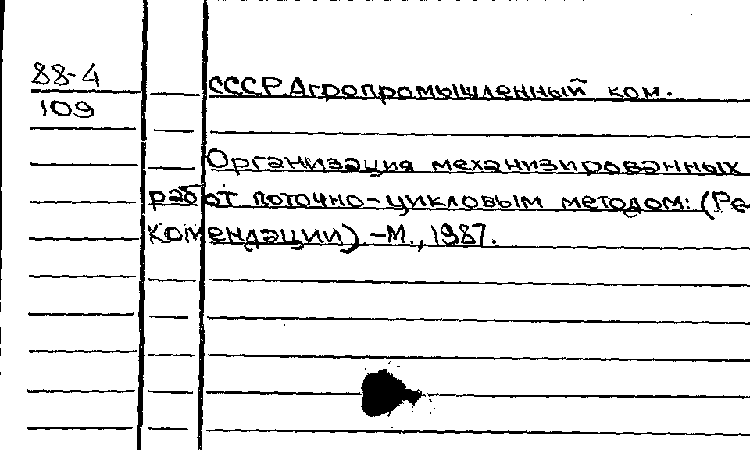 88-4
109
СССР. Агропромышленный ком.
Организация механизированных
работ поточно-цикловым методом: (Ре
комендации).-М., 1987.